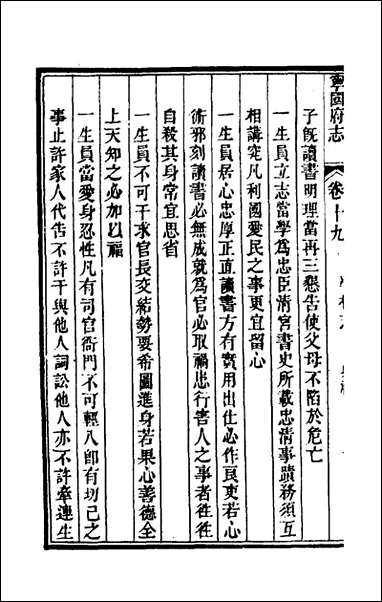 寧國府志 卷十九
子旣讀書明理當再三懇告使父母不陷於危亡
一生員立志當學爲忠臣清官書史所載忠清事蹟務須互
相講究凡利國愛民之事更宜留心
一生員居心忠厚正直讀書方有實用出仕必作良吏若心
術邪刻讀書必無成就爲官必取禍患行害人之事者徃徃
自殺其身常宜思省
一生員不可干求官長交結勢要希圖進身若果心善德全
上天知之必加以福
一生員當愛身忍性凡有司官衙門不可輕入卽有切己之
事止許家人代告不許干與他人詞訟他人亦不許牽連生